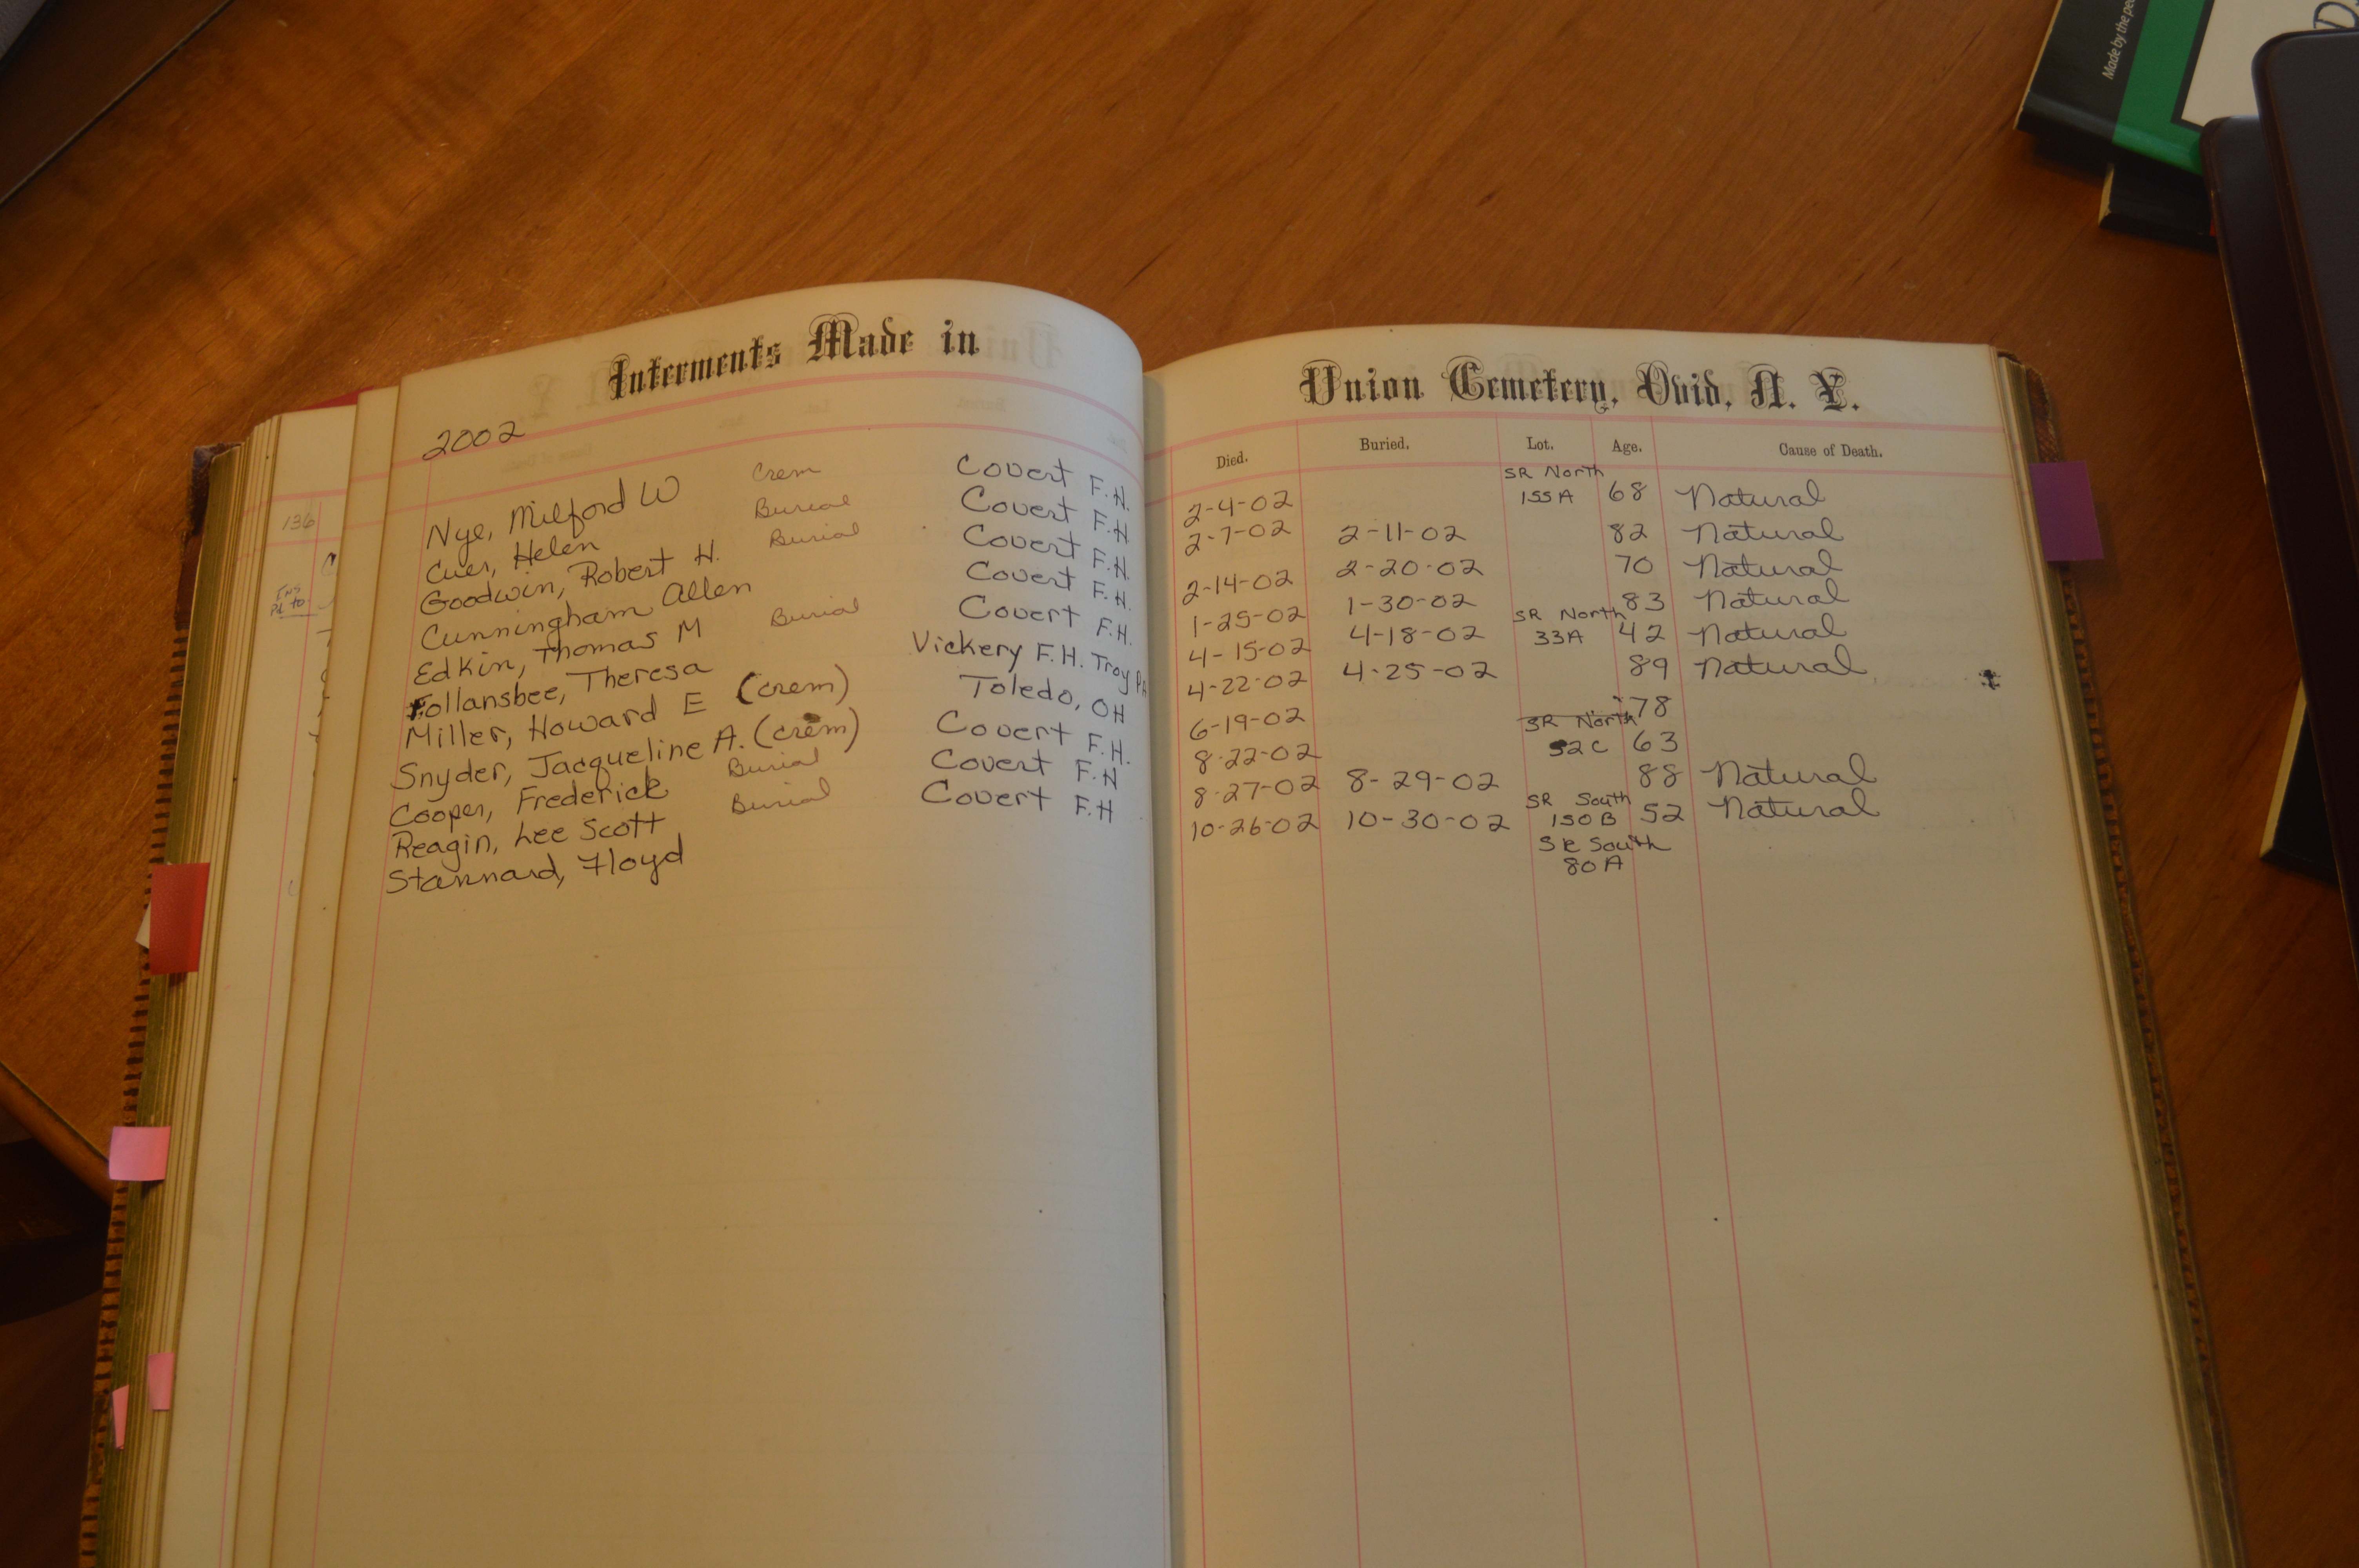 Interments Made in
2002
Nye, Milford W Crem Covert F.H.
Cuer, Helen Burial Covert F.H
Goodwin, Robert H. Burial Covert F.H.
Cunningham Allen Covert F.H.
Edkin, Thomas M Burial Covert F.H.
Follansbee, Theresa Vickery F.H. Troy PA
Miller, Howard E (crem) Toledo, OH
Snyder, Jacqueline A. (crem) Covert F.H.
Cooper, Frederick Burial Covert F.H
Reagin, Lee Scott Burial Covert F.H
Stannard, Floyd
136
Pd to
Union Cemetery, Ovid, N. Y.
Died. Buried. Lot. Age. Cause of Death.
SR North
2-4-02 155A 68 Natural
2-7-02 2-11-02 82 Natural
2-14-02 2-20-02 70 Natural
1-25-02 1-30-02 83 Natural
SR North
4-15-02 4-18-02 33A 42 Natural
4-22-02 4-25-02 89 Natural
6-19-02 78
SR North
8-22-02 52C 63
8-27-02 8-29-02 88 Natural
SR South
10-26-02 10-30-02 150B 52 Natural
SR South
80A
Made by the